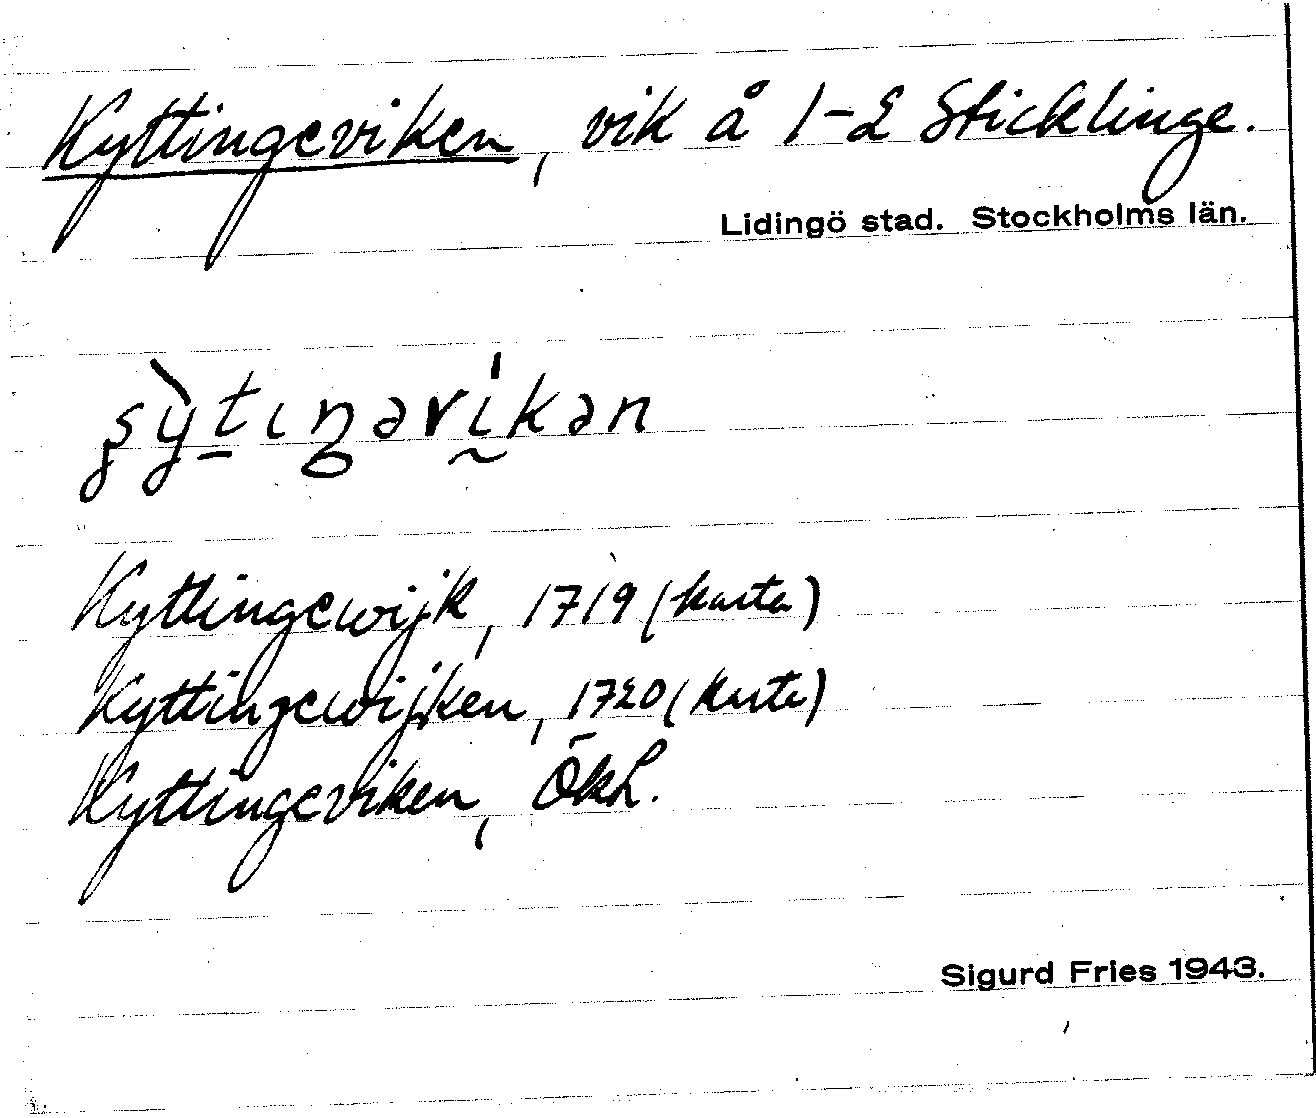 Kyttingeviken, vik å 1-2 Sticklinge.
Lidingö stad. Stockholms län.
Kyttingewijk, 1719 (karta)
Kyttingewijken, 1720 (karta)
Kyttingeviken, ÖkL.
Sigurd Fries 1943.